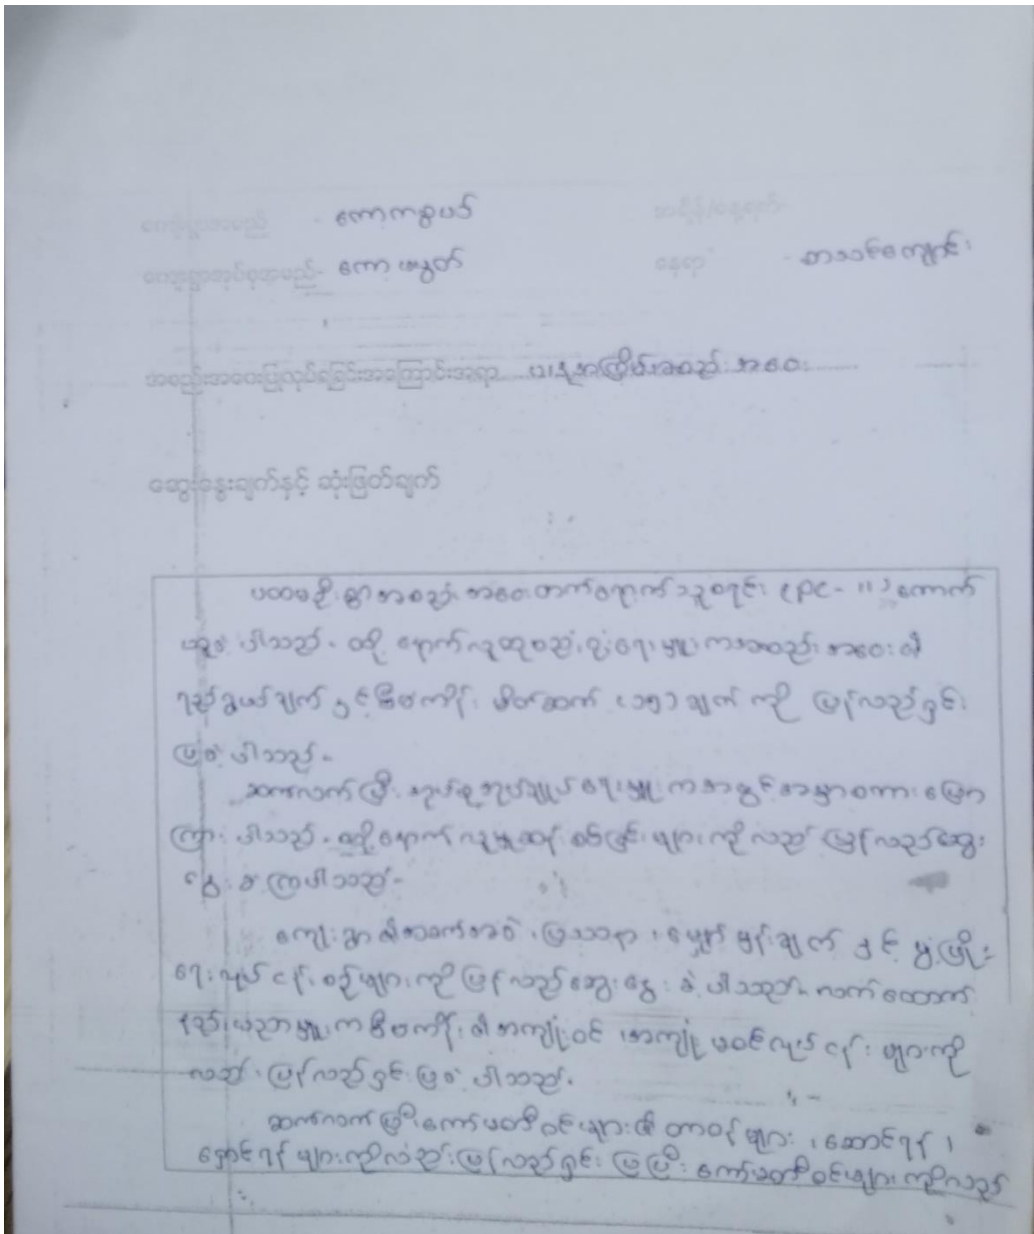 ကျေးရွာအမည် - ကော့ကဒွပဒ် အချိန်/နေ့ရက်-
ကျေးရွာအုပ်စုအမည်- ကော့ နေရာ - စာသင်ကျောင်း
အစည်းအဝေးပြုလုပ်ရခြင်းအကြောင်းအရာ အကြိမ်အစည်းအဝေး
ဆွေးနွေးချက်နှင့် ဆုံးဖြတ်ချက်
ပထမဦးစွာအစည်းအဝေးတက်ရောက်သူစာရင်း ကောက်
ယူခဲ့ပါသည်။ ထို့နောက်လူထုစည်းရုံးရေးမှူးကအစည်းအဝေး၏
ရည်ရွယ်ချက်နှင့်စီမံကိန်းမိတ်ဆက် (၁၅) ချက်ကို ပြန်လည်ရှင်း
ပြခဲ့ပါသည်။
ဆက်လက်ပြီးအုပ်စုအုပ်ချုပ်ရေးမှူးကအဖွင့်အမှာစကားပြော
ကြားပါသည်။ ထို့နောက်လူမှုဆန်းစစ်ခြင်းများကိုလည်းပြန်လည်ဆွေး
နွေးခဲ့ကြပါသည်။
ကျေးရွာ၏အခက်အခဲ၊ပြဿနာ၊မျှော်မှန်းချက်နှင့်ဖွံ့ဖြိုး
ရေးလုပ်ငန်းစဉ်များကိုပြန်လည်ဆွေးနွေးခဲ့ပါသည်။ လက်ထောက်
နည်းပညာမှူးကစီမံကိန်း၏အကျုံးဝင်၊အကျုံးမဝင်လုပ်ငန်းများကို
လည်းပြန်လည်ရှင်းပြခဲ့ပါသည်။
ဆက်လက်ပြီးကော်မတီဝင်များ၏တာဝန်များ၊ဆောင်ရန်၊
ရှောင်ရန်များကိုလည်းပြန်လည်ရှင်းပြပြီးကော်မတီဝင်များကိုလည်း